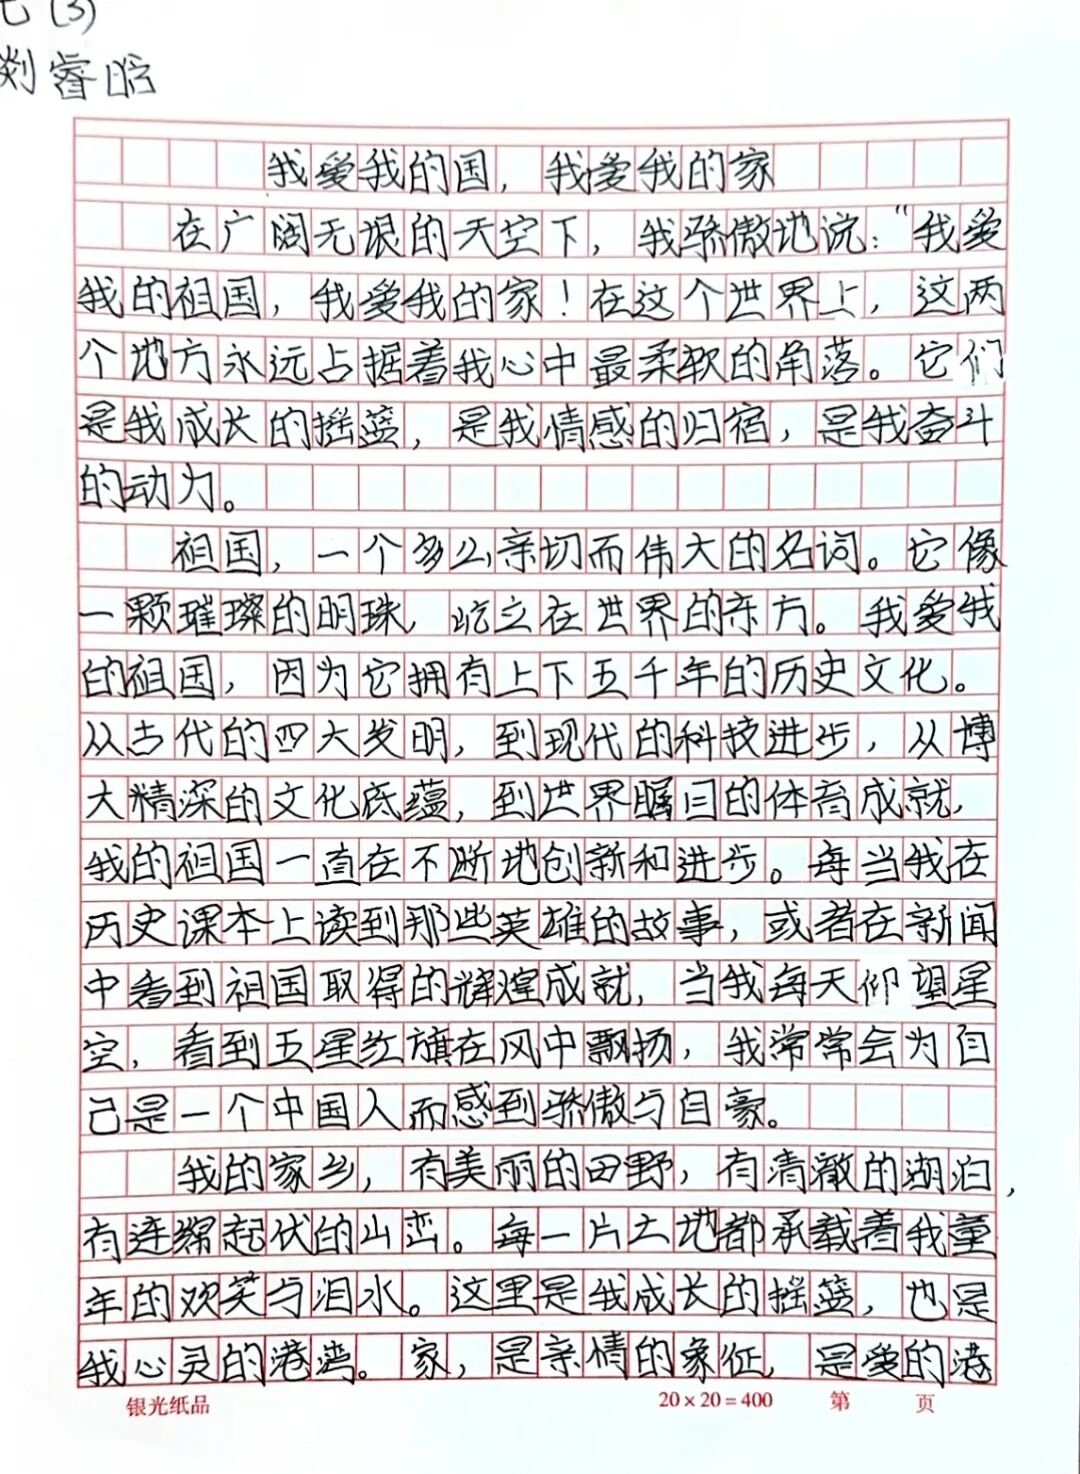 七(3)
睿
我爱我的国，我爱我的家
在广阔无垠的天空下，我骄傲地说：“我爱
我的祖国，我爱我的家！在这个世界上，这两
个地方永远占据着我心中最柔软的角落。它们
是我成长的摇篮，是我情感的归宿，是我奋斗
的动力。
祖国，一个多么亲切而伟大的名词。它像
一颗璀璨的明珠，屹立在世界的东方。我爱我
的祖国，因为它拥有上下五千年的历史文化。
从古代的四大发明，到现代的科技进步，从博
大精深的文化底蕴，到世界瞩目的体育成就，
我的祖国一直在不断地创新和进步。每当我在
历史课本上读到那些英雄的故事，或者在新闻
中看到祖国取得的辉煌成就，当我每天仰望星
空，看到五星红旗在风中飘扬，我常常会为自
己是一个中国人而感到骄傲与自豪。
我的家乡，有美丽的田野，有清澈的湖泊，
有连绵起伏的山峦。每一片土地都承载着我童
年的欢笑与泪水。这里是我成长的摇篮，也是
我心灵的港湾。家，是亲情的象征，是爱的港
银光纸品
20×20=400
第 页